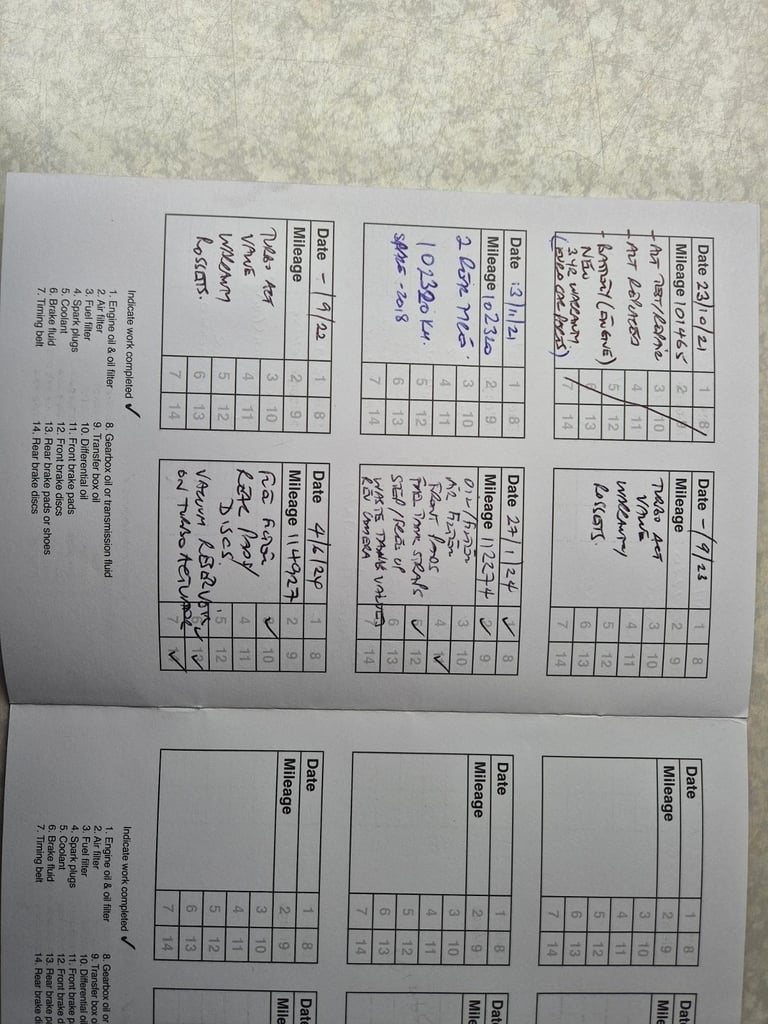 Date 23/10/21
Mileage 101465
- ALT TEST/REPAIR
- ALT REPLACED
- BATTERY (ENGINE)
NEW
3 YR WARRANTY.
(EURO CAR PARTS)
1 8
2 9
3 10
4 11
5 12
6 13
7 14
Date 13/11/21
Mileage 102320
102320 KM.
SPARE - 2018
1 8
2 9
3 10
4 11
5 12
6 13
7 14
Date -/9/22
Mileage
TURBO ACT
VANE
WARRANTY
ROSSETS.
1 8
2 9
3 10
4 11
5 12
6 13
7 14
Indicate work completed ✓
1. Engine oil & oil filter
2. Air filter
3. Fuel filter
4. Spark plugs
5. Coolant
6. Brake fluid
7. Timing belt
8. Gearbox oil or transmission fluid
9. Transfer box oil
10. Differential oil
11. Front brake pads
12. Front brake discs
13. Rear brake pads or shoes
14. Rear brake discs
Date -/9/23
Mileage
TURBO ACT
VANE
WARRANTY
ROSSETS.
1 8
2 9
3 10
4 11
5 12
6 13
7 14
Date 27/1/24
Mileage 112274
OIL/FILTER
AIR FILTER
FRONT PADS
TANK STRAPS
STEP
WASTE TANK VALVE
REV CAMERA
1 8
2 9
3 10
4 11
5 12
6 13
7 14
Date 4/6/24
Mileage 114927
FUEL FILTER
REAR PADS/
DISCS.
VACUUM RESERVOIR
ON TURBO ACTUATOR
1 8
2 9
3 10
4 11
5 12
6 13
7 14
Date
Mileage
1 8
2 9
3 10
4 11
5 12
6 13
7 14
Date
Mileage
1 8
2 9
3 10
4 11
5 12
6 13
7 14
Date
Mileage
1 8
2 9
3 10
4 11
5 12
6 13
7 14
Indicate work completed ✓
1. Engine oil & oil filter
2. Air filter
3. Fuel filter
4. Spark plugs
5. Coolant
6. Brake fluid
7. Timing belt
8. Gearbox oil or
9. Transfer box o
10. Differential oil
11. Front brake p
12. Front brake d
13. Rear brake pa
14. Rear brake di
Date
Mile
Date
Mile
Date
Mile